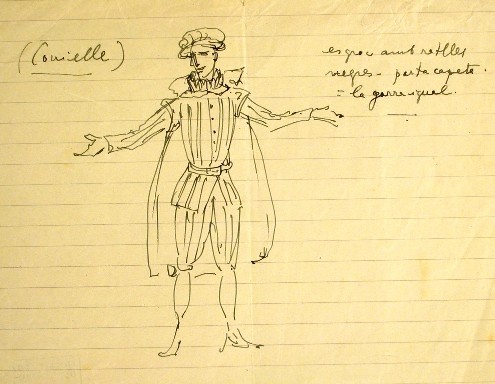 (Covielle)
es groc amb ratlles
negres - porta capeta.
= la gorra igual.